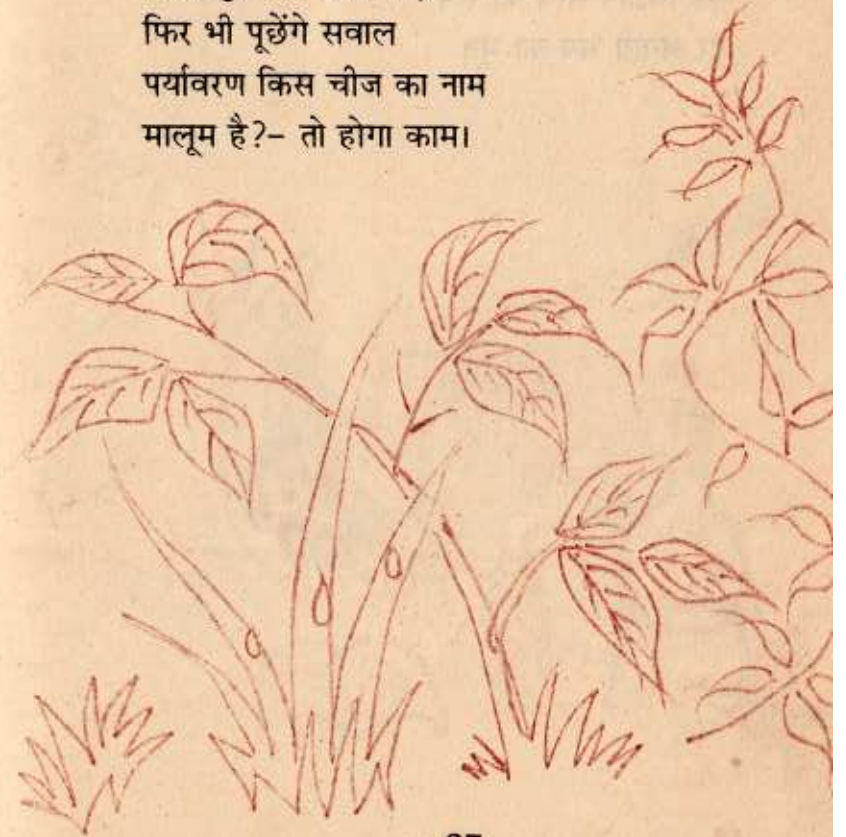 फिर भी पूछेंगे सवाल
पर्यावरण किस चीज का नाम
मालूम है?– तो होगा काम।